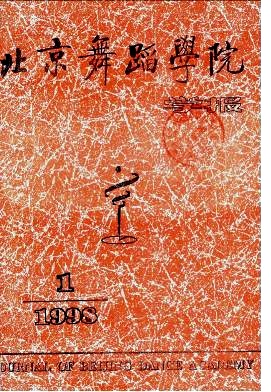 北京舞蹈學院
學報
1
1998
JOURNAL OF BEIJING DANCE ACADEMY